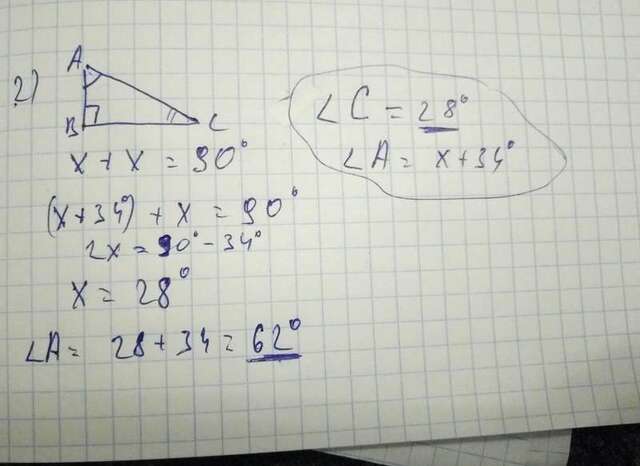 2)
A
B
C
x + x = 90°
(x + 34°) + x = 90°
2x = 90° - 34°
x = 28°
∠A = 28 + 34 = 62°
∠C = 28°
∠A = x + 34°